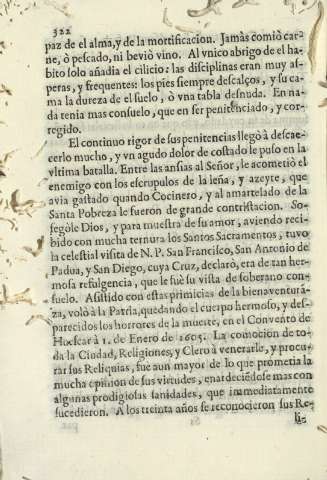 322
paz de el alma, y de la mortificacion. Jamàs comiò car-
ne, ò pescado, ni beviò vino. Al vnico abrigo de el ha-
bito solo añadia el cilicio: las disciplinas eran muy as-
peras, y frequentes: los pies siempre descalços, y su ca-
ma la dureza de el suelo, ò vna tabla desnuda. En na-
da tenia mas consuelo, que en ser penitenciado, y cor-
regido.
El continuo rigor de sus penitencias llegò à descae-
cerlo mucho, y vn agudo dolor de costado le puso en la
vltima batalla. Entre las ansias al Señor, le acometiò el
enemigo con los escrupulos de la leña, y azeyte, que
avia gastado quando Cocinero, y al amartelado de la
Santa Pobreza le fueron de grande contristacion. So-
segòle Dios, y para muestra de su amor, aviendo reci-
bido con mucha ternura los Santos Sacramentos, tuvo
la celestial visita de N. P. San Francisco, San Antonio de
Padua, y San Diego, cuya Cruz, declarò, era de tan her-
mosa refulgencia, que le fuè su vista de soberano con-
suelo. Assistido con estas primicias de la bienaventura-
za, volò à la Patria, quedando el cuerpo hermoso, y des-
parecidos los horrores de la muerte, en el Convento de
Huescar à 1. de Enero de 1605. La comocion de to-
da la Ciudad, Religiones, y Clero à venerarle, y procu-
rar sus Reliquias, fue aun mayor de lo que prometia la
mucha opinion de sus virtudes, enardeciendose mas con
algunas prodigiosas sanidades, que inmediatamente
sucedieron. A los treinta años se reconocieron sus Re-
li-